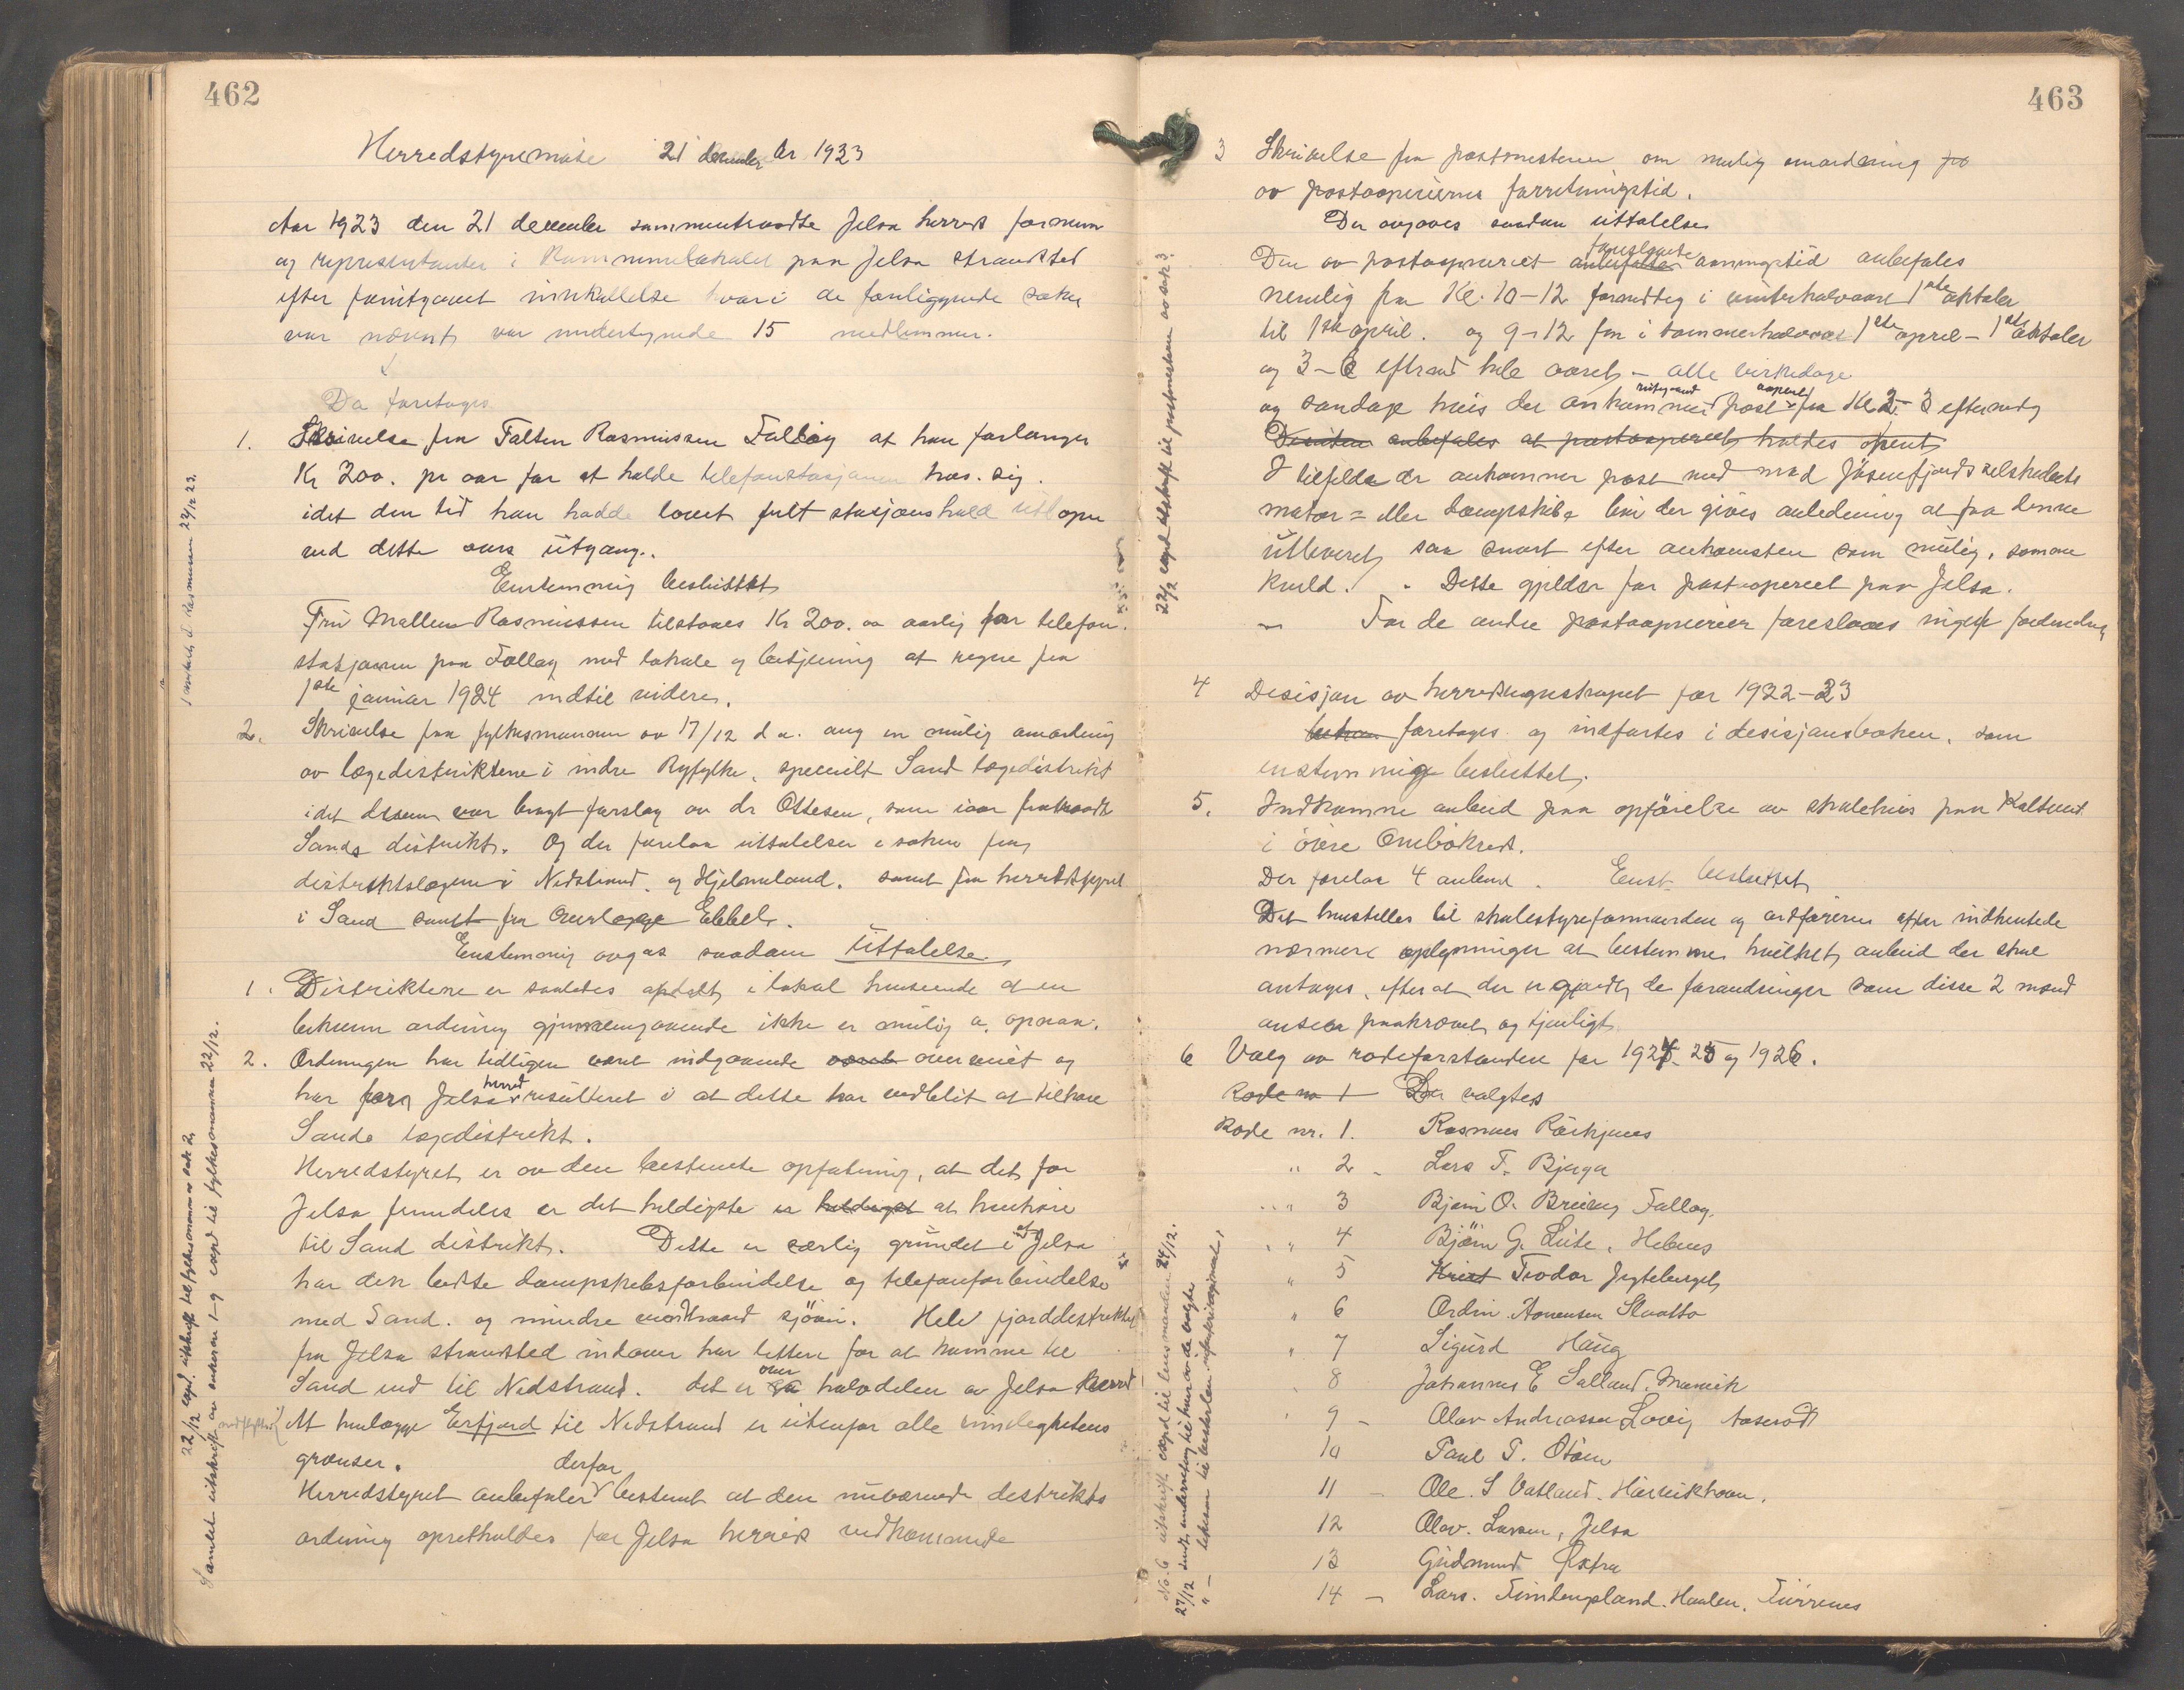 462
Herredstyremøte 21 december År 1923
Aar 1923 den 21 december sammentraadte Jelsa herreds formenn
og representanter i Kommunelokalet paa Jelsa strandsted
efter forutgaaet innkallelse hvori de foreliggende saker
var nævnt, var undertegnede 15 medlemmer.
Da foretoges
1. Skrivelse fra Falten Rasmussen Følløy at han forlanger
Kr 200. pr aar for at holde telefonstasjonen hos. sig.
idet den tid han hadde lovet frit stasjonshold utløper
ved dette aars utgang.
Enstemmig besluttet
Fru Malene Rasmussen tilstaaes Kr 200. aarlig for telefon.
stasjonen paa Følløy med lokale og betjening at regne fra
1ste januar 1924 indtil videre.
2. Skrivelse fra fylkesmannen av 17/12 d a. ang en mulig omordning
av lægedistriktene i indre Ryfylke, specielt Sand lægedistrikt
idet dessum var bragt forslag av dr Ottesen, som iaar fratraadte
Sands distrikt. Og der forelaa uttalelser i saken fra
distriktslægene i Nedstrand og Hjelmeland. samt fra herredstyret
i Sand samt fra Overlæge Ebbel.
Enstemmig avgas saadan Uttalelse
1. Distriktene er saaledes opdelt, i lokal henseende at en
bekvem ordning gjennemgaaende ikke er mulig a. opnaa.
2. Ordningen har tidligere været indgaaende været overveiet og
har for Jelsa herred resulteret i at dette har vedblit at tilhøre
Sands lægedistrikt.
Herredstyret er av den bestemte opfatning, at det for
Jelsa fremdeles er det heldigste er heldigst at henhøre
til Sand distrikt. Dette er særlig grundet i at Jelsa
har den bedste dampskibsforbindelse og telefonforbindelse
med Sand. og mindre værhaard sjøvei. Hele fjorddistriktet
fra Jelsa strandsted indover har lettere for at komme til
Sand end til Nedstrand. det er over halvdelen av Jelsa Herred
At henlægge Erfjord til Nedstrand er utenfor alle rimelighetens
grænser.
Herredstyret anbefaler derfor bestemt at den nuværende distrikts
ordning opretholdes for Jelsa herreds vedkommende
22/12 exp. utskrift til fylkesmannen av sak 2.
Samlet utskrift av sakerne 1-9 exped til fylkesmannen 22/12.
463
3 Skrivelse fra postmesteren om mulig omordning
av postaapneriernes forretningstid.
Der avgaves saadan uttalelse
Den av postaapneriet foreslaaede anbefalte aapningstid anbefales
nemlig fra Kl. 10-12 formidtag i vinterhalvaaret 1ste oktober
til 1ste april. og 9-12 fm i sommerhalvaaret 1ste april - 1ste oktober
og 3-6 eftermd hele aaret, - alle virkedage
og søndage hvis der ankommer post fra Kl 2-3 eftermidg
Desuten anbefales at postaaperiet, holdes åpent
I tilfelde der ankommer post med med Jøsenfjords selskabets
motor= eller dampskibe bør der gives anledning at faa denne
utleveret saa snart efter ankomsten som mulig, samme
kveld. Dette gjelder for postaaperiet paa Jelsa.
For de andre postaapnerier foreslaaes ingen forandring
4 Desisjon av herredsregnskapet for 1922-23
foretoges og indførtes i desisjonsboken, som
enstemmig besluttet.
5. Indkomne anbud paa opførelse av skolehus paa Kaltveit
i øvre Ombokreds.
Der forelaa 4 anbud. Enst. besluttet
Det henstilles til skolestyreformanden og ordføreren efter indhentede
nærmere oplysninger at bestemme hvilket anbud der skal
antages, efter at der er gjort de forandringer som disse 2 mænd
anser paakrævet og tjenligt
6 Valg av rodeforstandere for 1924. 25 og 1926.
Rode nr 1 Der valgtes
Rode nr. 1. Rasmus Rørkjenes
" 2 - Lars T. Bjerga
" 3 Bjørn O. Breivig Følløy.
" 4 Bjørn G. Leite, Hebnes
" 5 Krist Teodor Jegteberget
" 6 Ordin Aamensen Slaatto
" 7 Sigurd Haug
8 Johannes E Sølland, Marvik
9 - Olav Andreassen Lovig Aaserød
10 Paul P. Støen
11 - Ole. S Vatland. Haavikhaaen.
12 Olav. Larsen, Jelsa
13 Gudmund Østrå
14 - Lars. Tendenesland. Haalen,
22/12 exped utskrift til postmesteren av sak 3
No. 6 utskrift exped til lensmanden 24/12.
27/12 sendt underretning til hver av de valgte